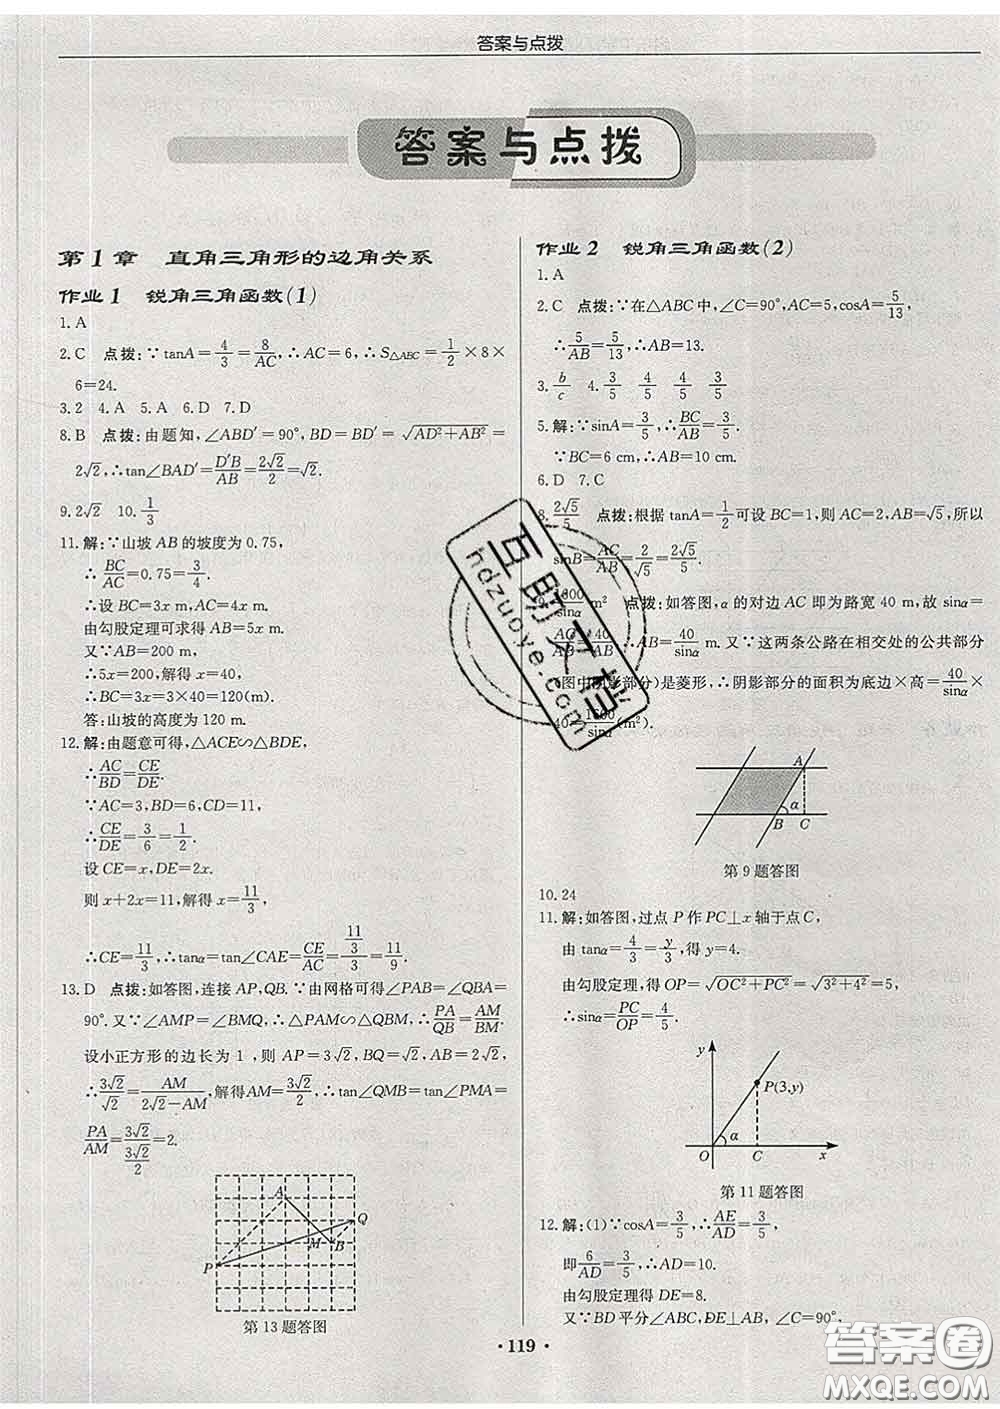 答案与点拨
答案与点拨
第1章 直角三角形的边角关系
作业1 锐角三角函数(1)
1. A
2. C 点拨:∵tanA=4/3=8/AC,∴AC=6,∴S△ABC=1/2×8×
6=24.
3. 2 4. A 5. A 6. D 7. D
8. B 点拨:由题知,∠ABD′=90°,BD=BD′=√(AD²+AB²)=
2√2,∴tan∠BAD′=D′B/AB=2√2/2=√2.
9. 2√2 10. 1/3
11. 解:∵山坡AB的坡度为0.75,
∴BC/AC=0.75=3/4.
∴设BC=3x m,AC=4x m.
由勾股定理可求得AB=5x m.
又∵AB=200 m,
∴5x=200,解得x=40,
∴BC=3x=3×40=120(m).
答:山坡的高度为120 m.
12. 解:由题意可得,△ACE∽△BDE,
∴AC/BD=CE/DE.
∵AC=3,BD=6,CD=11,
∴CE/DE=3/6=1/2.
设CE=x,DE=2x.
则x+2x=11,解得x=11/3,
∴CE=11/3,∴tanα=tan∠CAE=CE/AC=(11/3)/3=11/9.
13. D 点拨:如答图,连接AP,QB.∵由网格可得∠PAB=∠QBA=
90°.又∵∠AMP=∠BMQ,∴△PAM∽△QBM,∴PA/QB=AM/BM.
设小正方形的边长为1,则AP=3√2,BQ=√2,AB=2√2,
∴3√2/√2=AM/(2√2-AM),解得AM=3√2/2,∴tan∠QMB=tan∠PMA=
PA/AM=3√2/(3√2/2)=2.
A
Q
M B
P
第13题答图
作业2 锐角三角函数(2)
1. A
2. C 点拨:∵在△ABC中,∠C=90°,AC=5,cosA=5/13,
∴5/AB=5/13,∴AB=13.
3. b/c 4. 3/5 4/5 4/5 3/5
5. 解:∵sinA=3/5,∴BC/AB=3/5.
∵BC=6 cm,∴AB=10 cm.
6. D 7. C
8. 2√5/5 点拨:根据tanA=1/2可设BC=1,则AC=2,AB=√5,所以
sinB=AC/AB=2/√5=2√5/5.
9. 1600/sinα m² 点拨:如答图,α的对边AC即为路宽40 m,故sinα=
AC/AB=40/AB,∴AB=40/sinα m.又∵这两条公路在相交处的公共部分
(图中阴影部分)是菱形,∴阴影部分的面积为底边×高=40/sinα×
40=1600/sinα(m²).
A
α
B C
第9题答图
10. 24
11. 解:如答图,过点P作PC⊥x轴于点C,
由tanα=4/3=y/3,得y=4.
由勾股定理,得OP=√(OC²+PC²)=√(3²+4²)=5,
∴sinα=PC/OP=4/5.
y
P(3,y)
α
O C x
第11题答图
12. 解:(1)∵cosA=3/5,∴AE/AD=3/5,
即6/AD=3/5,∴AD=10.
由勾股定理得DE=8.
又∵BD平分∠ABC,DE⊥AB,∠C=90°,
• 119 •
互助文档
hdzuoye.com
答案圈
MXQE.COM